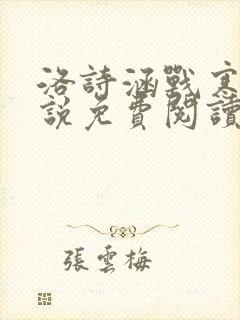 洛詩涵戰寒
說免費閱讀
張雲梅